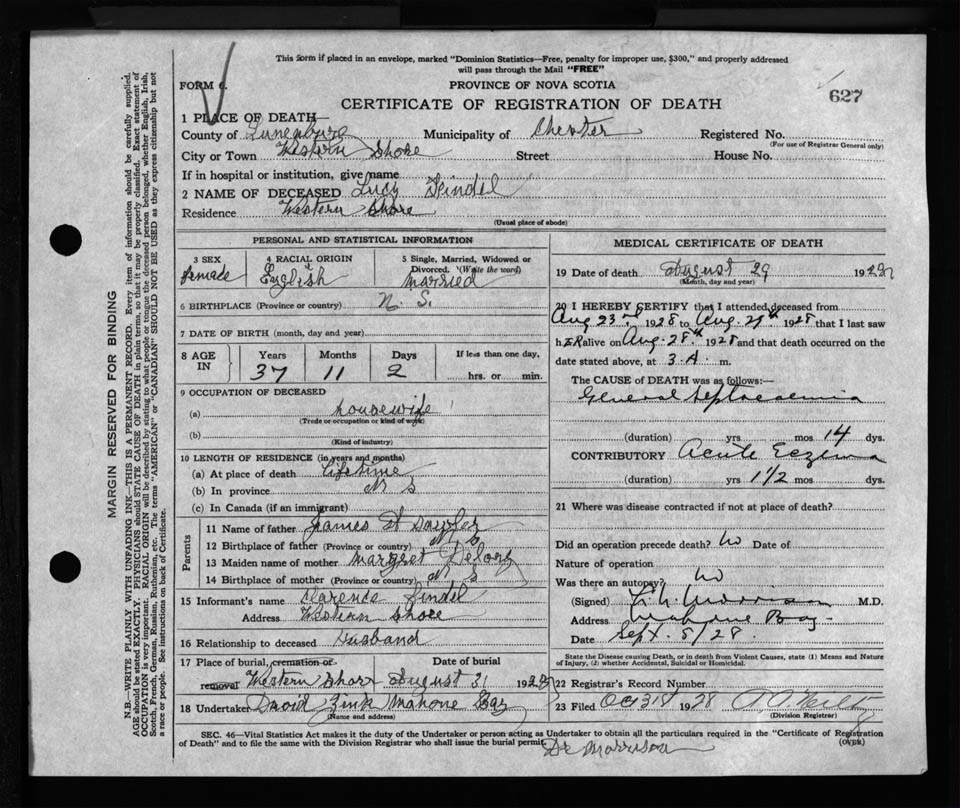 This form if placed in an envelope, marked "Dominion Statistics—Free, penalty for improper use, $300," and properly addressed
will pass through the Mail "FREE"
FORM 6.
PROVINCE OF NOVA SCOTIA
627
CERTIFICATE OF REGISTRATION OF DEATH
1 PLACE OF DEATH—
County of Lunenburg Municipality of Chester Registered No.
(For use of Registrar General only)
City or Town Western Shore Street House No.
If in hospital or institution, give name
2 NAME OF DECEASED Lucy Zindel
Residence Western Shore
(Usual place of abode)
PERSONAL AND STATISTICAL INFORMATION
3 SEX 4 RACIAL ORIGIN 5 Single, Married, Widowed or
Divorced. (Write the word)
female English Married
6 BIRTHPLACE (Province or country) N. S.
7 DATE OF BIRTH (month, day and year)
8 AGE IN Years Months Days If less than one day,
37 11 2 hrs. or min.
9 OCCUPATION OF DECEASED
(a) housewife
(Trade or occupation or kind of work)
(b)
(Kind of industry)
10 LENGTH OF RESIDENCE (in years and months)
(a) At place of death Lifetime
(b) In province N S
(c) In Canada (if an immigrant)
Parents
11 Name of father James W
12 Birthplace of father (Province or country) N S
13 Maiden name of mother Margret
14 Birthplace of mother (Province or country) N S
15 Informant's name Clarence Zindel
Address Western Shore
16 Relationship to deceased Husband
17 Place of burial, cremation or Date of burial
removal Western Shore August 31 1928
18 Undertaker David Zink Mahone Bay
(Name and address)
MEDICAL CERTIFICATE OF DEATH
19 Date of death August 29 1928
(Month, day and year)
20 I HEREBY CERTIFY that I attended deceased from
Aug 23rd 1928 to Aug. 29th 1928 that I last saw
hER alive on Aug. 28th 1928 and that death occurred on the
date stated above, at 3 A. m.
The CAUSE OF DEATH was as follows:—
General Septicaemia
(duration) yrs mos 14 dys.
CONTRIBUTORY Acute Eczema
(duration) yrs 1 1/2 mos dys.
21 Where was disease contracted if not at place of death?
Did an operation precede death? No Date of
Nature of operation
Was there an autopsy? No
(Signed) Morrison M.D.
Address Mahone Bay
Date Sept. 5/28.
State the Disease Causing Death, or in death from Violent Causes, state (1) Means and Nature
of Injury, (2) whether Accidental, Suicidal or Homicidal.
22 Registrar's Record Number
23 Filed Oct 31st 1928
(Division Registrar)
SEC. 46—Vital Statistics Act makes it the duty of the Undertaker or person acting as Undertaker to obtain all the particulars required in the "Certificate of Registration
of Death" and to file the same with the Division Registrar who shall issue the burial permit.
(OVER)
Dr Morrison
MARGIN RESERVED FOR BINDING
N.B.—WRITE PLAINLY WITH UNFADING INK—THIS IS A PERMANENT RECORD. Every item of information should be carefully supplied.
AGE should be stated EXACTLY. PHYSICIANS should STATE CAUSE OF DEATH in plain terms, so that it may be properly classified. Exact statement of
OCCUPATION is very important. RACIAL ORIGIN will be described by stating to what people or tongue the deceased person belonged, whether English, Irish,
Scotch, French, German, Russian, Ruthenian, etc. The terms "AMERICAN" or "CANADIAN" SHOULD NOT BE USED as they express citizenship but not
a race or people. See instructions on back of Certificate.